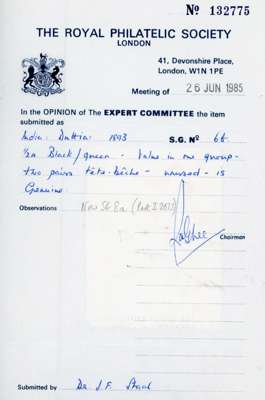 Nº 132775
THE ROYAL PHILATELIC SOCIETY
LONDON
41, Devonshire Place,
London, W1N 1PE
Meeting of 26 JUN 1985
In the OPINION of The EXPERT COMMITTEE the item
submitted as
India: Duttia: 1893 S.G. Nº 6b
½a Black/green - Value in one group -
two pairs tête-bêche - unused - is
Genuine.
Observations Now St Ed (Part I
Chairman
Submitted by Dr J. F.